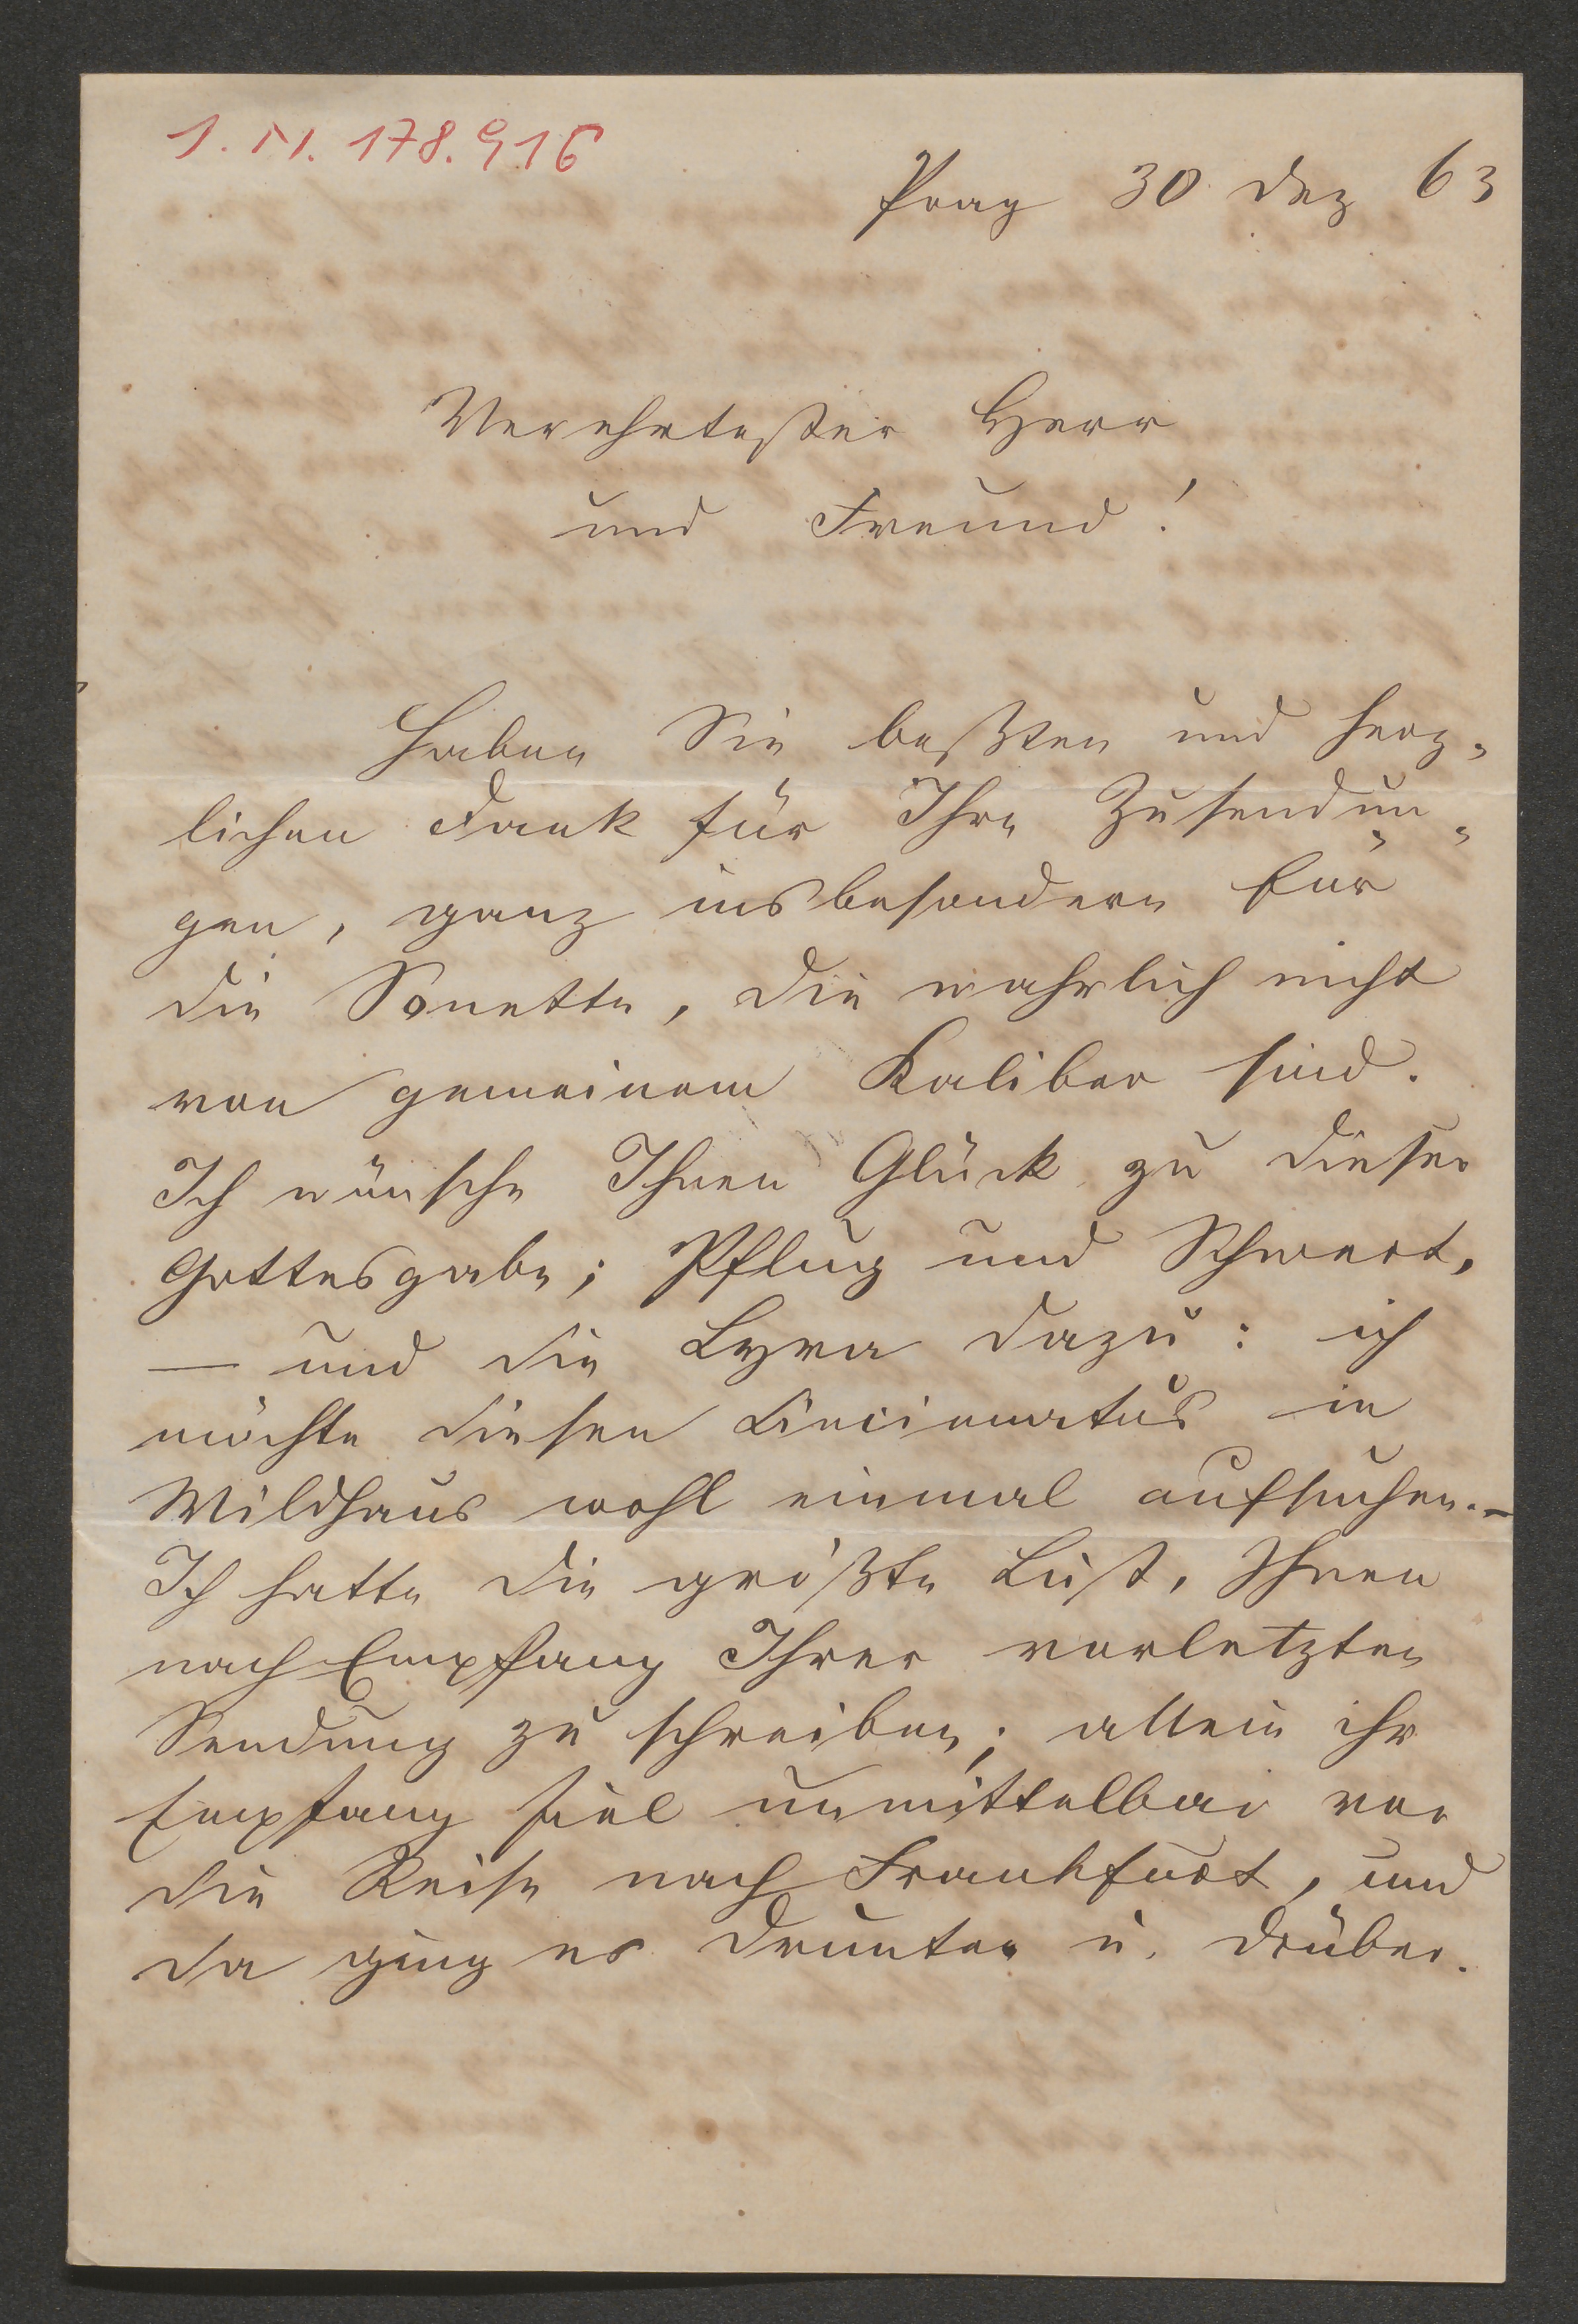 I. N. 178.916
Prag 30 Dez 63
Verehrtester Herr
und Freund!
Haben Sie beßten und herz-
lichen Dank für Ihre Zusendun-
gen, ganz insbesondere für
die Sonette, die wahrlich nicht
von gemeinem Kaliber sind.
Ich wünsche Ihnen Glück zu dieser
Gottesgabe; Pflug und Schwert,
— und die Lyra dazu: ich
möchte diesen Cincinnatus in
Wildhaus wohl einmal aufsuchen. –
Ich hatte die größte Lust, Ihnen
nach Empfang Ihrer vorletzten
Sendung zu schreiben; allein ihr
Empfang fiel unmittelbar vor
die Reise nach Frankfurt, und
da ging es drunter u. drüber.